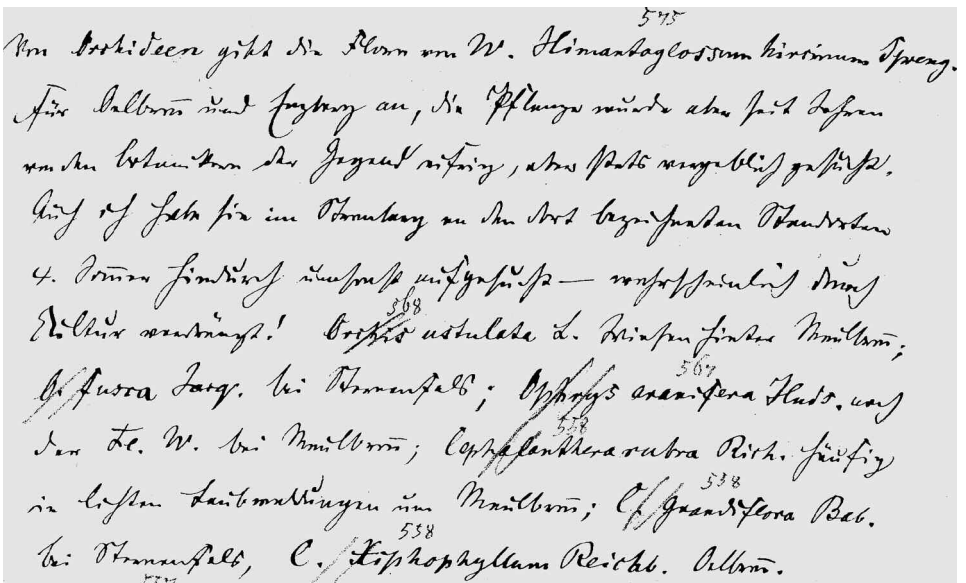 575
Von Orchideen gibt die Flora von W. Himantoglossum hircinum Spreng.
für Oelbronn und Enzberg an, die Pflanze wurde aber seit Jahren
von den Botanikern der Gegend eifrig, aber stets vergeblich gesucht.
Auch ich habe sie im Stromberg an den dort bezeichneten Standorten
4. Sommer hindurch umsonst aufgesucht — wahrscheinlich durch
568
Kultur verdrängt! Orchis ustulata L. Wiesen hinter Maulbronn;
567
O. fusca Jacq. bei Sternenfels; Ophrys aranifera Huds. nach
558
der Fl. W. bei Maulbronn; Cephalanthera rubra Rich. häufig
558
in lichten Laubwaldungen um Maulbronn; C. Grandiflora Bab.
558
bei Sternenfels, C. Xiphophyllum Reichb. Oelbronn.